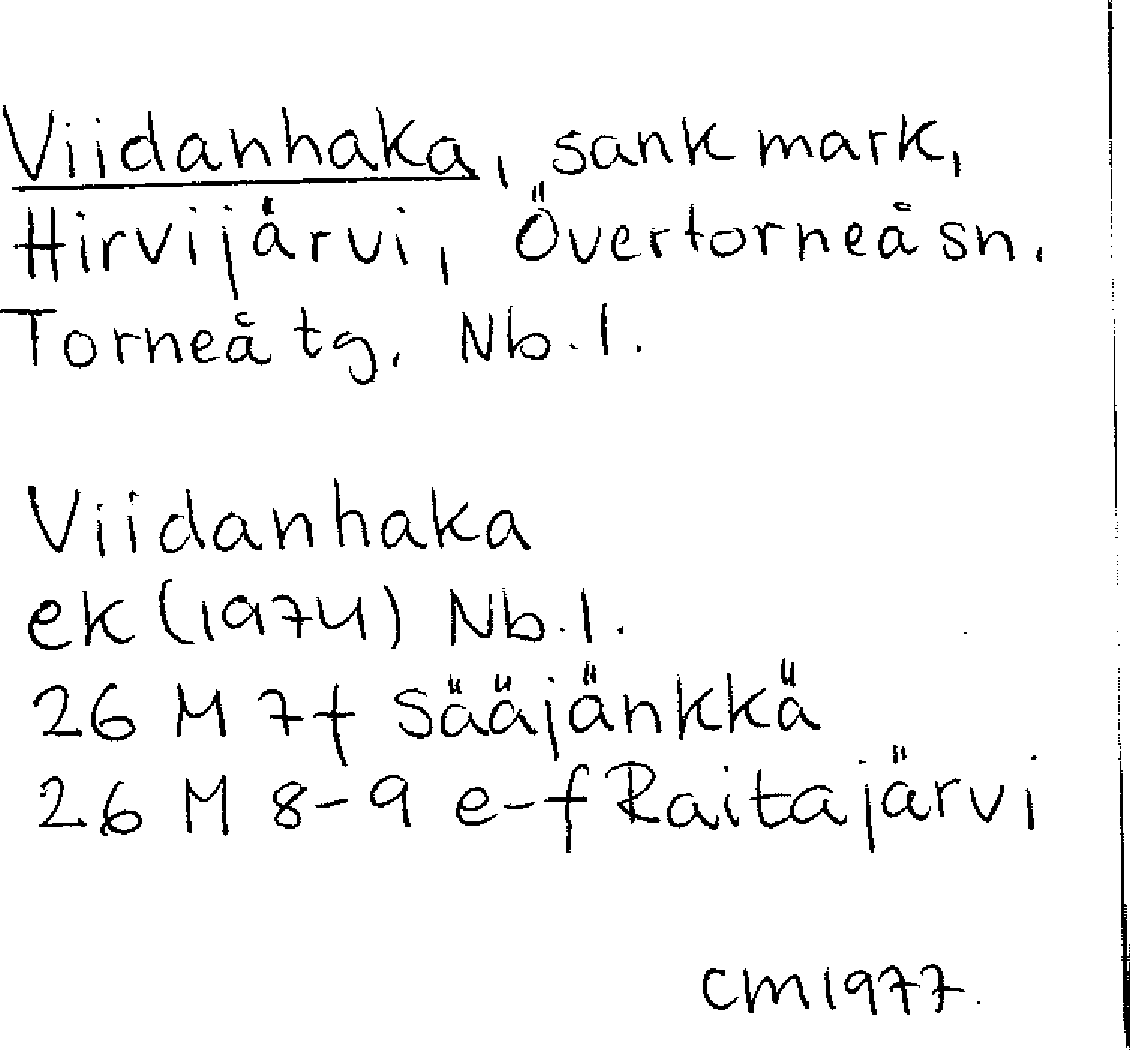 Viidanhaka, sank mark,
Hirvijärvi, Övertorneå sn.
Torneå tg. Nb. l.
Viidanhaka
ek (1974) Nb. l.
26 M 7f Sääjänkkä
26 M 8-9 e-f Raitajärvi
CM 1977.